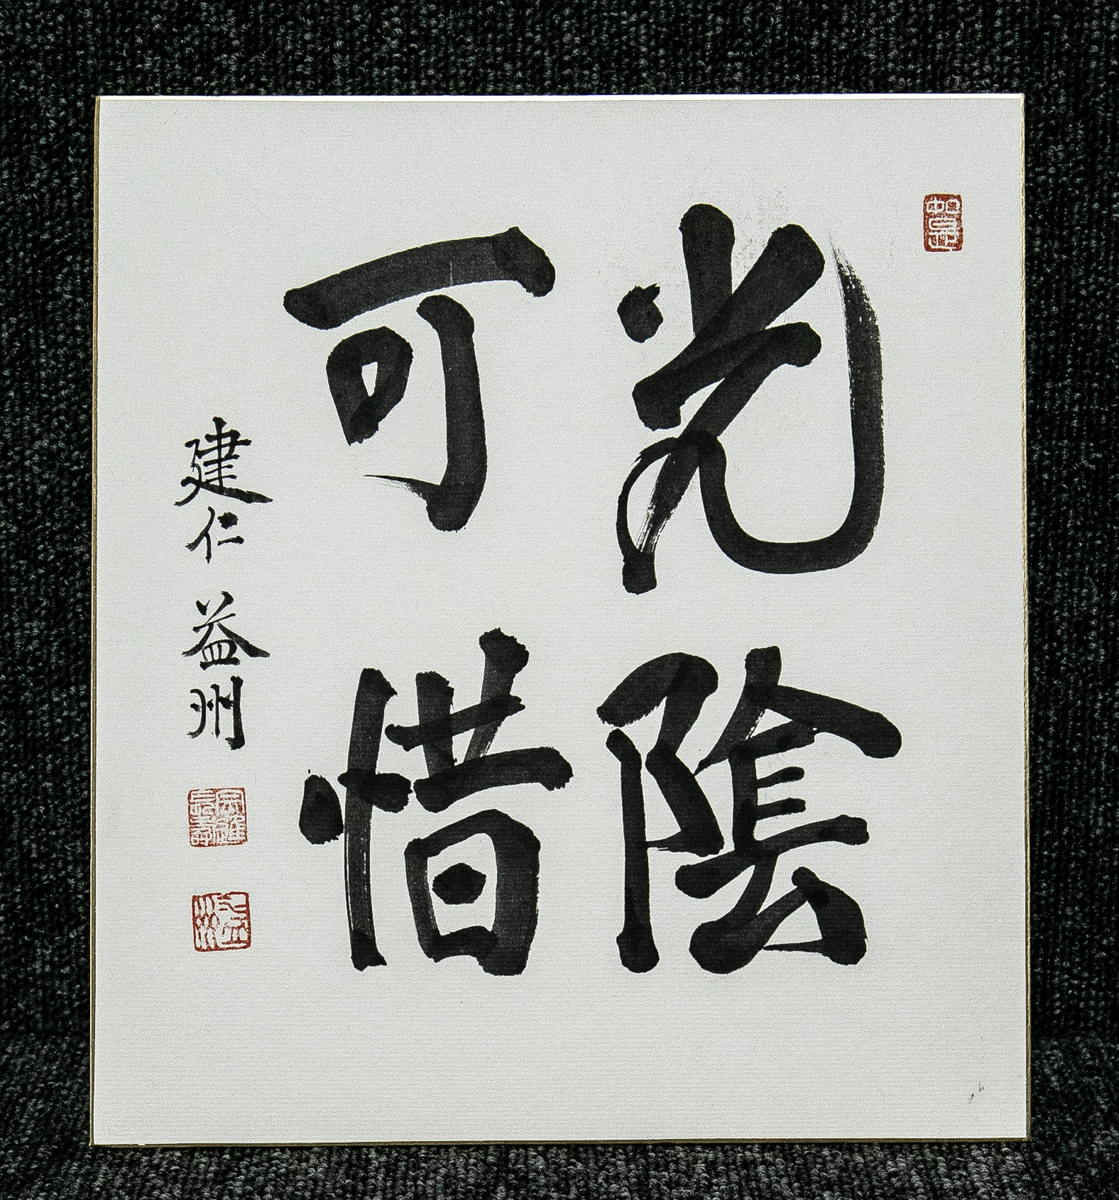 光陰
可惜
建仁 益州